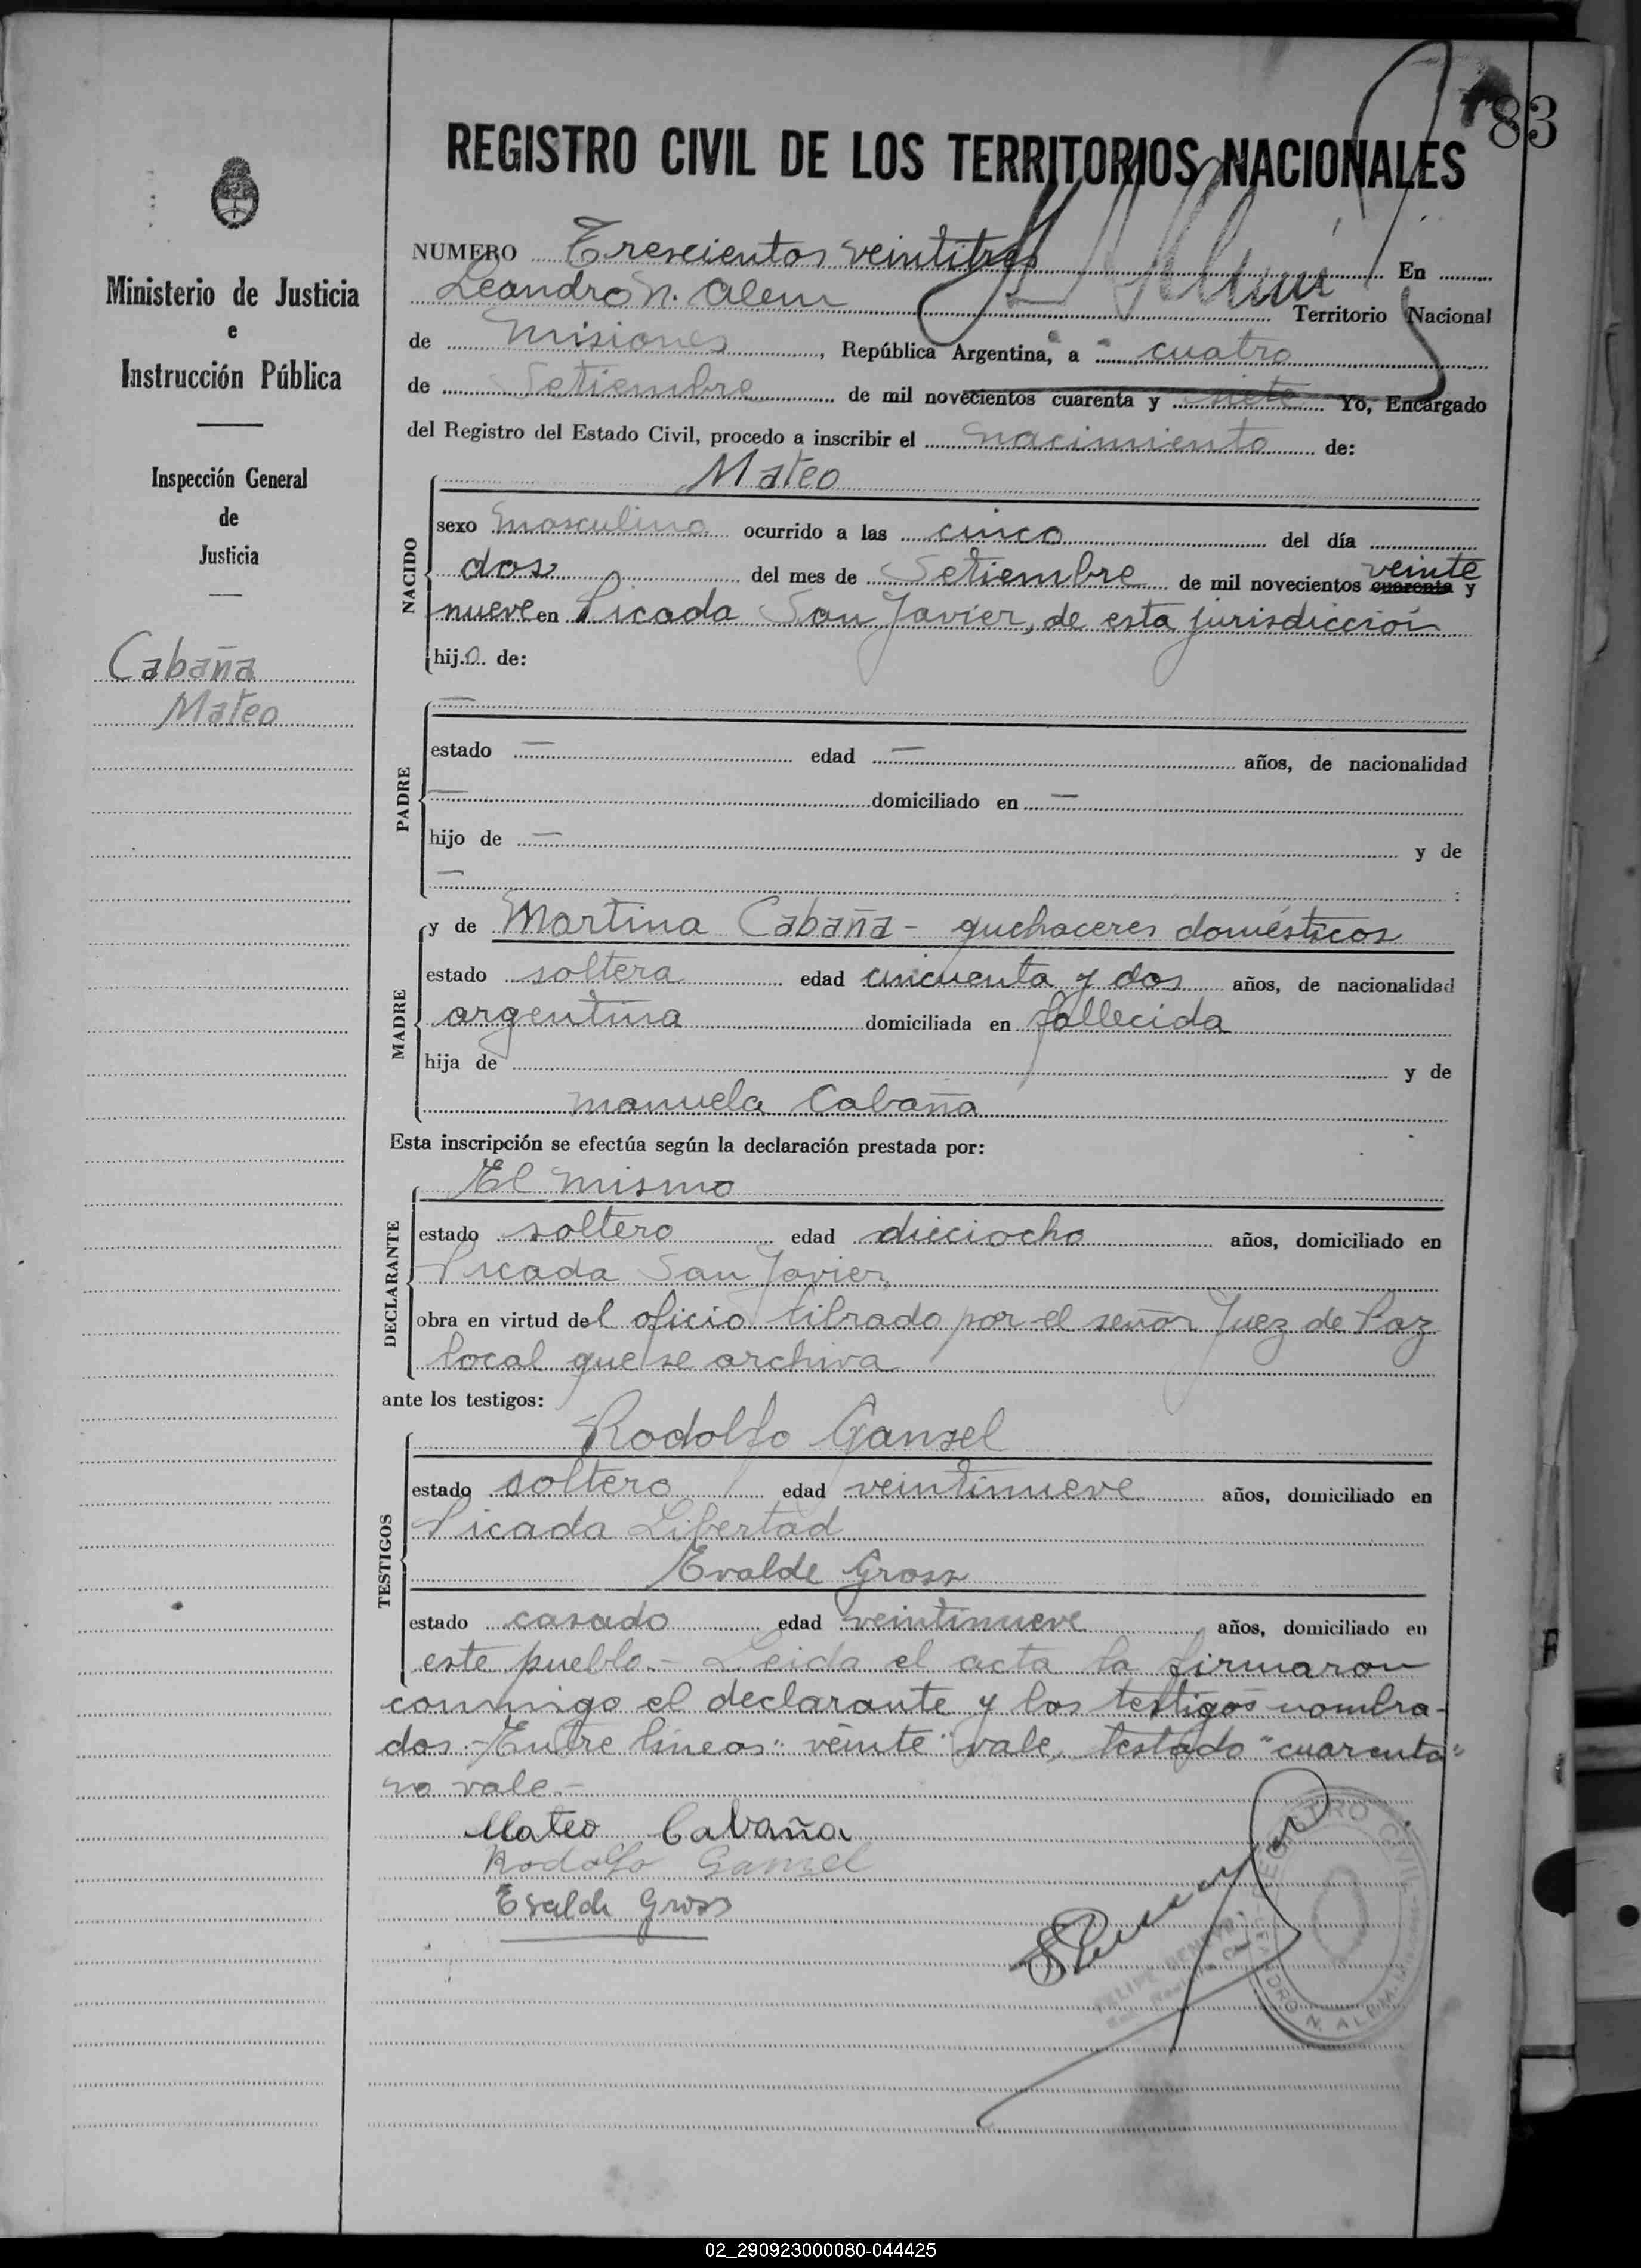 83
REGISTRO CIVIL DE LOS TERRITORIOS NACIONALES
Ministerio de Justicia
e
Instrucción Pública
Inspección General
de
Justicia
Cabaña
Mateo
NUMERO Trescientos veintitres En
Leandro N. Alem Territorio Nacional
de Misiones, República Argentina, a cuatro
de Setiembre de mil novecientos cuarenta y siete Yo, Encargado
del Registro del Estado Civil, procedo a inscribir el nacimiento de:
Mateo
NACIDO
sexo masculino ocurrido a las cinco del día
dos del mes de Setiembre de mil novecientos cuarenta veinte y
nueve en Picada San Javier, de esta jurisdicción
hijo de:
PADRE
—
estado — edad — años, de nacionalidad
— domiciliado en —
hijo de — y de
— :
MADRE
y de Martina Cabaña - quehaceres domésticos
estado soltera edad cincuenta y dos años, de nacionalidad
argentina domiciliada en fallecida
hija de y de
manuela Cabaña
Esta inscripción se efectúa según la declaración prestada por:
DECLARANTE
El mismo
estado soltero edad dieciocho años, domiciliado en
Picada San Javier
obra en virtud del oficio librado por el señor Juez de Paz
local que se archiva
ante los testigos:
TESTIGOS
Rodolfo Gansel
estado soltero edad veintinueve años, domiciliado en
Picada Libertad
Evalde Gross
estado casado edad veintinueve años, domiciliado en
este pueblo.- Leida el acta la firmaron
conmigo el declarante y los testigos nombra-
dos.- Entre lineas: "veinte" vale, testado "cuarenta"
no vale.-
Mateo Cabaña
Rodolfo Gansel
Evalde Gross
REGISTRO CIVIL
LEANDRO N. ALEM
02_290923000080-044425